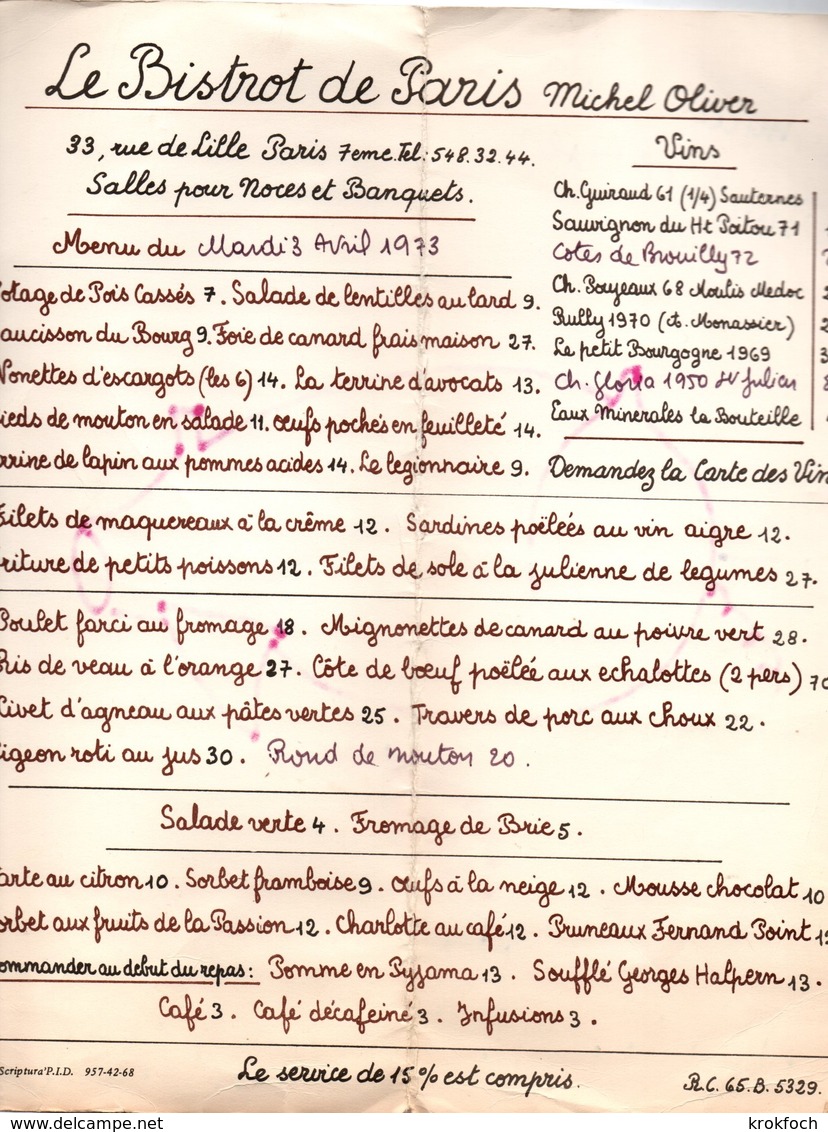 Le Bistrot de Paris Michel Oliver
33, rue de Lille Paris 7eme. Tel: 548.32.44.
Salles pour Noces et Banquets.
Menu du Mardi 3 Avril 1973
Vins
Ch. Guiraud 61 (1/4) Sauternes
Sauvignon du Ht Poitou 71
Cotes de Brouilly 72
Ch. Poujeaux 68 Moulis Medoc
Rully 1970 (A. Monassier)
Le petit Bourgogne 1969
Ch. Gloria 1950 St Julien
Eaux Minerales la Bouteille
Demandez la Carte des Vin
otage de Pois Cassés 7. Salade de lentilles au lard 9.
aucisson du Bourg 9. Foie de canard frais maison 27.
Nonettes d'escargots (les 6) 14. La terrine d'avocats 13.
ieds de mouton en salade 11. œufs pochés en feuilleté 14.
rrine de lapin aux pommes acides 14. Le legionnaire 9.
Filets de maquereaux à la crême 12. Sardines poëlées au vin aigre 12.
riture de petits poissons 12. Filets de sole à la julienne de legumes 27.
Poulet farci au fromage 18. Mignonettes de canard au poivre vert 28.
Ris de veau à l'orange 27. Côte de bœuf poëlée aux echalottes (2 pers) 70
Civet d'agneau aux pâtes vertes 25. Travers de porc aux choux 22.
igeon roti au jus 30. Rond de mouton 20.
Salade verte 4. Fromage de Brie 5.
arte au citron 10. Sorbet framboise 9. œufs à la neige 12. Mousse chocolat 10
orbet aux fruits de la Passion 12. Charlotte au café 12. Pruneaux Fernand Point 12
ommander au debut du repas: Pomme en Pyjama 13. Soufflé Georges Halpern 13.
Café 3. Café décafeiné 3. Infusions 3.
Scriptura'P.I.D. 957-42-68
Le service de 15% est compris.
R.C. 65.B.5329.
© krokfoch